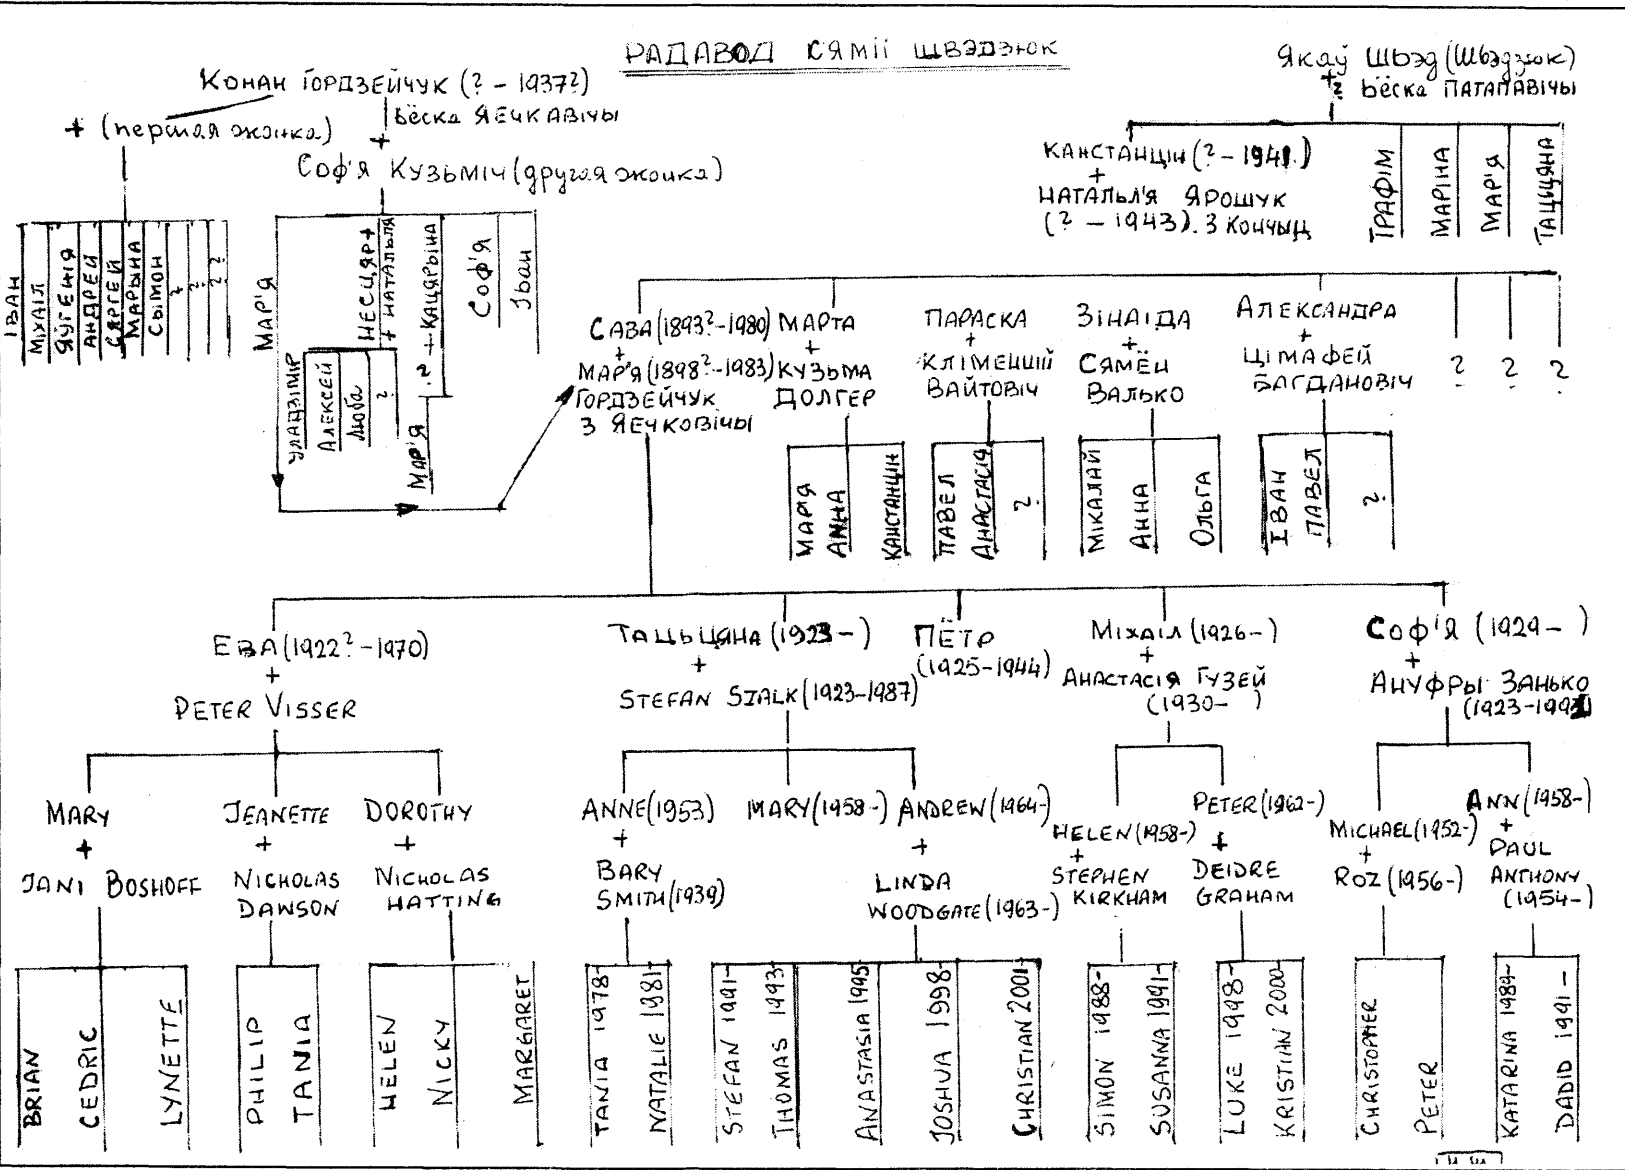 РАДАВОД СЯМІІ ШВЭДЗЮК
Конан Гордзейчук (? – 1937?)
вёска Яечкавічы
+ (першая жонка)
+
Соф'я Кузьміч (другая жонка)
Іван
Міхаіл
Яўгенія
Андрей
Сяргей
Марына
Сымон
?
?
?
Мар'я
Несцяр +
+ Наталья
? + Кацярына
Соф'я
Іван
Уладзімір
Алексей
Люба
?
Мар'я
Якаў Швэд (Швэдзюк)
+
? вёска Патапавічы
Канстанцін (? – 1941.)
+
Наталья Ярошук
(? – 1943). З Кончыц
Трафім
Марiна
Мар'я
Таццяна
Сава (1893? – 1980)
+
Мар'я (1898? – 1983)
Гордзейчук
з Яечковічы
Марта
+
Кузьма
Долгер
Параска
+
Кліменцій
Вайтовіч
Зінаіда
+
Сямён
Валько
Александра
+
Цімафей
Багдановіч
?
?
?
Мар'я
Анна
Канстанцін
Павел
Анастасія
?
Мікалай
Анна
Ольга
Іван
Павел
?
Ева (1922? – 1970)
+
Peter Visser
Тацьцяна (1923 – )
+
Stefan Szalk (1923–1987)
Пётр
(1925–1944)
Міхаіл (1926– )
+
Анастасія Гузей
(1930– )
Соф'я (1929 – )
+
Ануфры Занько
Mary
+
Jani Boshoff
Jeanette
+
Nicholas
Dawson
Dorothy
+
Nicholas
Hatting
Anne (1953)
+
Bary
Smith (1939)
Mary (1958 –)
Andrew (1964–)
+
Linda
Woodgate (1963–)
Helen (1958–)
+
Stephen
Kirkham
Peter (1962–)
+
Deidre
Graham
Michael (1952–)
+
Roz (1956–)
Ann (1958–)
+
Paul
Anthony
(1954–)
Brian
Cedric
Lynette
Philip
Tania
Helen
Nicky
Margaret
Tania 1978–
Natalie 1981–
Stefan 1991–
Thomas 1993–
Anastasia 1995–
Joshua 1998–
Christian 2001–
Simon 1988–
Susanna 1991–
Luke 1998–
Kristian 2000–
Christopher
Peter
Katarina 1989–
Dadid 1991 –